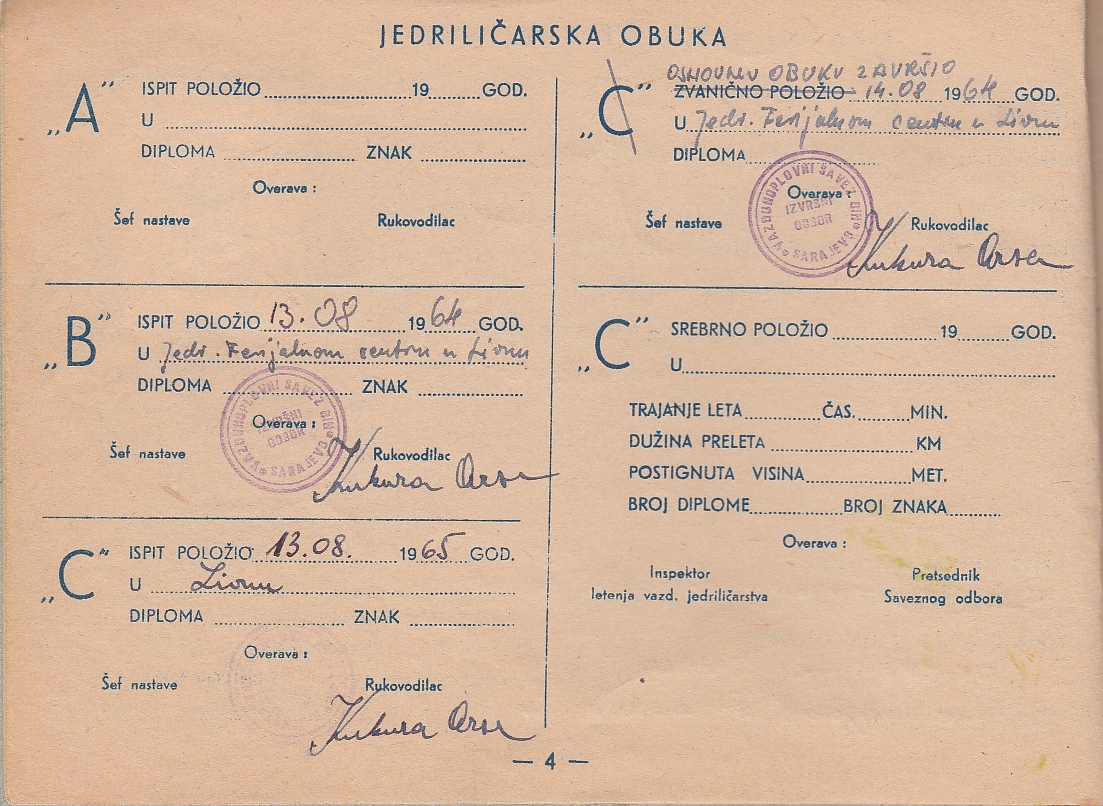 JEDRILIČARSKA OBUKA
„A” ISPIT POLOŽIO 19 GOD.
U
DIPLOMA ZNAK
Overava :
Šef nastave Rukovodilac
„B” ISPIT POLOŽIO 13.08 1964 GOD.
U Jedr. Ferijalnom centru u Livnu
DIPLOMA ZNAK
VAZDUHOPLOVNI SAVEZ BIH
IZVRŠNI
ODBOR
SARAJEVO
Overava :
Šef nastave Rukovodilac
Kukura Arsen
„C” ISPIT POLOŽIO 13.08. 1965 GOD.
U Livnu
DIPLOMA ZNAK
Overava :
Šef nastave Rukovodilac
Kukura Arsen
„C” OSNOVNU OBUKU ZAVRŠIO
ZVANIČNO POLOŽIO 14.08 1964 GOD.
U Jedr. Ferijalnom centru u Livnu
DIPLOMA
VAZDUHOPLOVNI SAVEZ BIH
IZVRŠNI
ODBOR
SARAJEVO
Overava :
Šef nastave Rukovodilac
Kukura Arsen
„C” SREBRNO POLOŽIO 19 GOD.
U
TRAJANJE LETA ČAS. MIN.
DUŽINA PRELETA KM
POSTIGNUTA VISINA MET.
BROJ DIPLOME BROJ ZNAKA
Overava :
Inspektor Pretsednik
letenja vazd. jedriličarstva Saveznog odbora
— 4 —